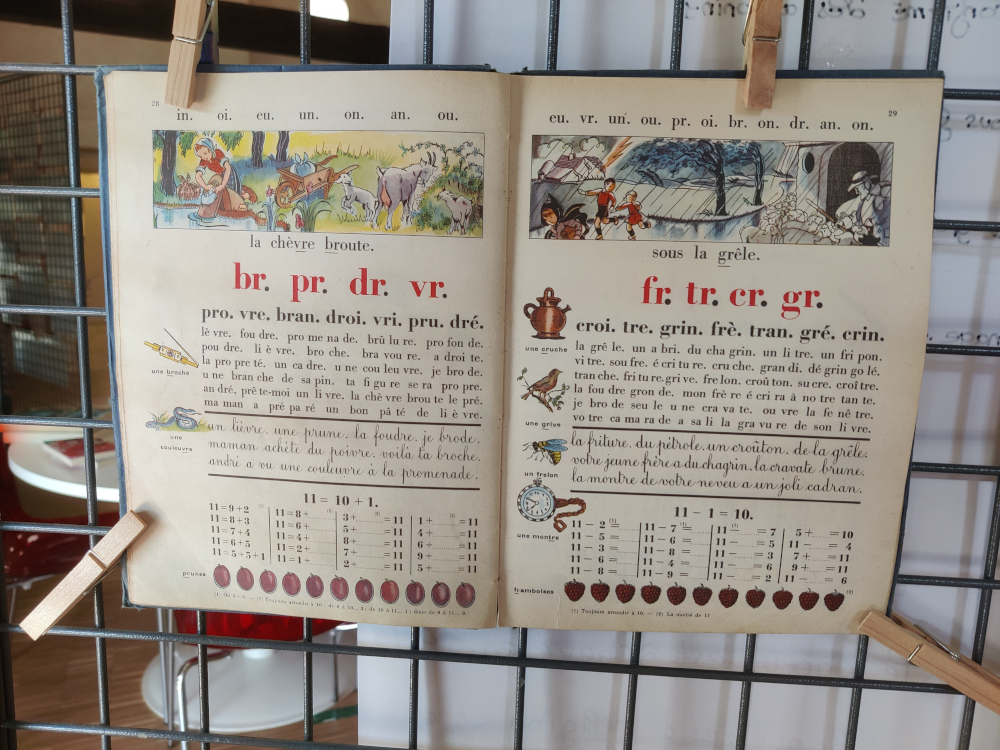 28
in. oi. eu. un. on. an. ou.
la chèvre broute.
br. pr. dr. vr.
pro. vre. bran. droi. vri. pru. dré.
lè vre. fou dre. pro me na de. brû lu re. pro fon de.
pou dre. li è vre. bro che. bra vou re. a droi te.
la pro pre té. un ca dre. u ne cou leu vre. je bro de.
u ne bran che de sa pin. ta fi gu re se ra pro pre.
an dré, prê te-moi un li vre. la chè vre brou te le pré.
ma man a pré pa ré un bon pâ té de li è vre.
une broche
une
couleuvre
un lièvre. une prune. la foudre. je brode.
maman achète du poivre. voilà la broche.
andré a vu une couleuvre à la promenade.
11 = 10 + 1.
11 = 9 + 2 (1) 11 = 8 + (1) 3 + = 11 1 + = 11
11 = 8 + 3 11 = 6 + 5 + = 11 4 + = 11
11 = 7 + 4 11 = 4 + 8 + = 11 6 + = 11
11 = 6 + 5 11 = 2 + 7 + = 11 9 + = 11
11 = 5 + 5 + 1 11 = 1 + 2 + = 11 5 + = 11
prunes
29
eu. vr. un. ou. pr. oi. br. on. dr. an. on.
sous la grêle.
fr. tr. cr. gr.
croi. tre. grin. frè. tran. gré. crin.
la grê le. un a bri. du cha grin. un li tre. un fri pon.
vi tre. sou fre. é cri tu re. cru che. gran di. dé grin go lé.
tran che. fri tu re. gri ve. fre lon. croû ton. su cre. croî tre.
la fou dre gron de. mon frè re é cri ra à no tre tan te.
je bro de seu le u ne cra va te. ou vre la fe nê tre.
vo tre ca ma ra de a sa li la gra vu re de son li vre.
une cruche
une grive
un frelon
une montre
la friture. du pétrole. un croûton. de la grêle.
votre jeune frère a du chagrin. la cravate brune.
la montre de votre neveu a un joli cadran.
11 − 1 = 10.
11 − 2 = (1) 11 − 7 = (1) 11 − (1) = 7 5 + = 10
11 − 5 = 11 − 6 = 11 − = 5 11 − = 4
11 − 3 = 11 − 8 = 11 − = 3 7 + = 11
11 − 6 = 11 − 4 = 11 − = 6 9 + = 11
11 − 8 = 11 − 9 = 11 − = 2 11 − = 6
framboises
(2)
(1) Toujours arrondir à 10. — (2) La moitié de 11